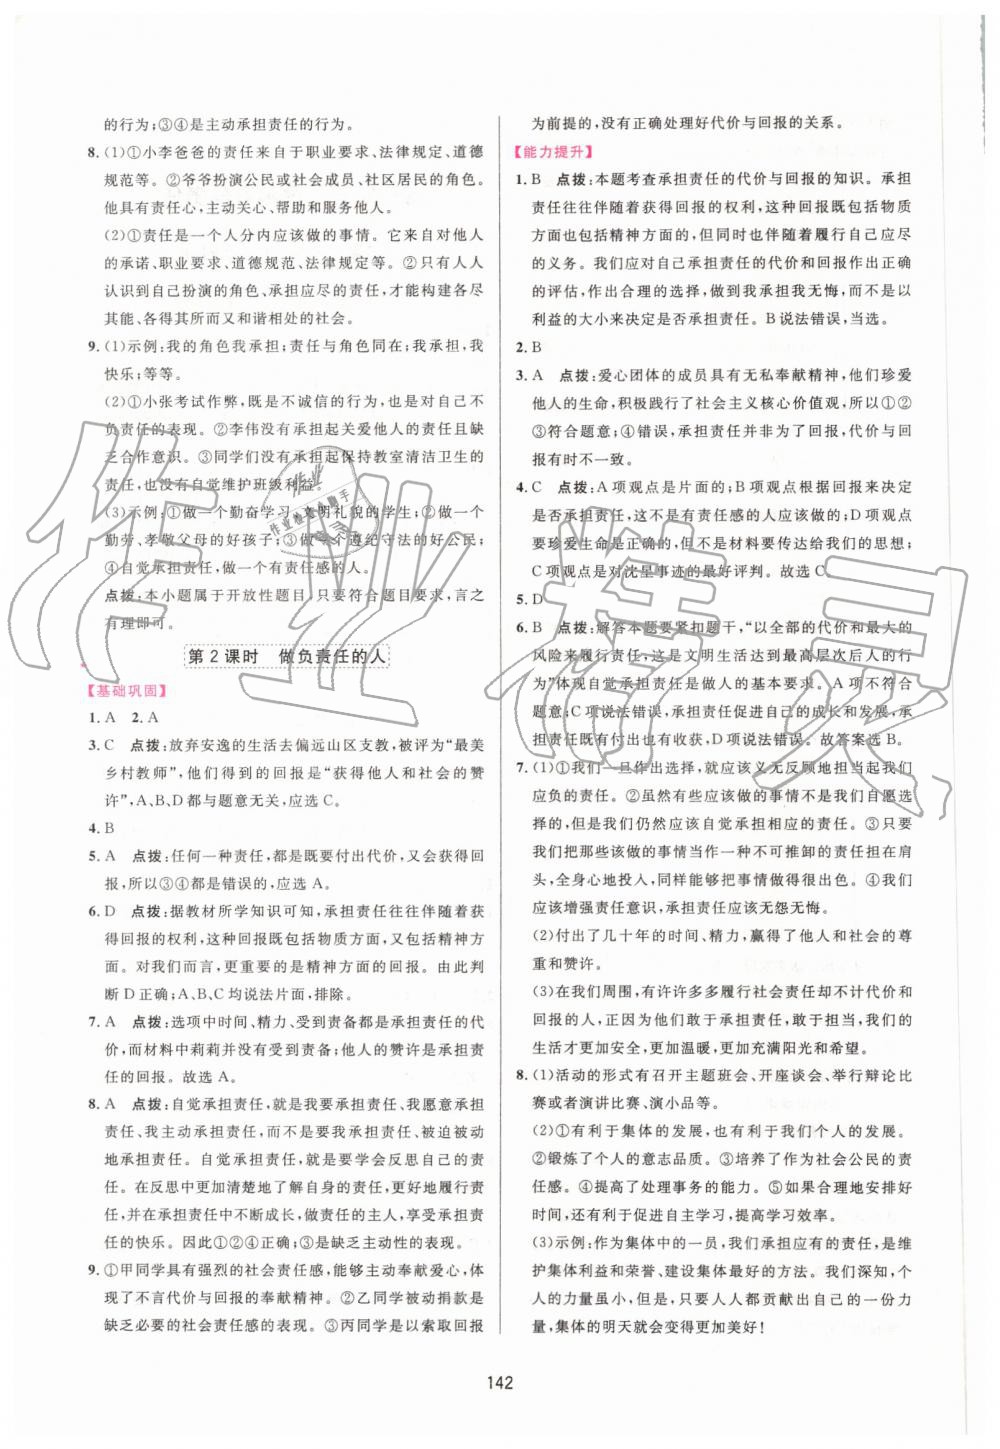 的行为;③④是主动承担责任的行为。
8. (1)①小李爸爸的责任来自于职业要求、法律规定、道德
规范等。②爷爷扮演公民或社会成员、社区居民的角色。
他具有责任心,主动关心、帮助和服务他人。
(2)①责任是一个人分内应该做的事情。它来自对他人
的承诺、职业要求、道德规范、法律规定等。②只有人人
认识到自己扮演的角色、承担应尽的责任,才能构建各尽
其能、各得其所而又和谐相处的社会。
9. (1)示例:我的角色我承担;责任与角色同在;我承担,我
快乐;等等。
(2)①小张考试作弊,既是不诚信的行为,也是对自己不
负责任的表现。②李伟没有承担起关爱他人的责任且缺
乏合作意识。③同学们没有承担起保持教室清洁卫生的
责任,没有自觉维护班级利益。
(3)示例:①做一个勤奋学习、文明礼貌的学生;②做一个
勤劳、孝敬父母的好孩子;③做一个遵纪守法的好公民;
④自觉承担责任,做一个有责任感的人。
点拨:本小题属于开放性题目,只要符合题目要求,言之
有理即可。
第2课时 做负责任的人
【基础巩固】
1. A 2. A
3. C 点拨:放弃安逸的生活去偏远山区支教,被评为“最美
乡村教师”,他们得到的回报是“获得他人和社会的赞
许”,A、B、D都与题意无关,应选C。
4. B
5. A 点拨:任何一种责任,都是既要付出代价,又会获得回
报,所以③④都是错误的,应选A。
6. D 点拨:据教材所学知识可知,承担责任往往伴随着获
得回报的权利,这种回报既包括物质方面,又包括精神方
面。对我们而言,更重要的是精神方面的回报。由此可判
断D正确;A、B、C均说法片面,排除。
7. A 点拨:选项中时间、精力、受到责备都是承担责任的代
价,而材料中莉莉并没有受到责备;他人的赞许是承担责
任的回报。故选A。
8. A 点拨:自觉承担责任,就是我要承担责任、我愿意承担
责任、我主动承担责任,而不是要我承担责任、被迫被动
地承担责任。自觉承担责任,就是要学会反思自己的责
任。在反思中更加清楚地了解自身的责任,更好地履行责
任,在承担责任中不断成长,做责任的主人,享受承担责
任的快乐。因此①②④正确;③是缺乏主动性的表现。
9. ①甲同学具有强烈的社会责任感,能够主动奉献爱心,体
现了不言代价与回报的奉献精神。②乙同学被动捐款是
缺乏必要的社会责任感的表现。③丙同学是以索取回报
为前提的,没有正确处理好代价与回报的关系。
【能力提升】
1. B 点拨:本题考查承担责任的代价与回报的知识。承担
责任往往伴随着获得回报的权利,这种回报既包括物质
方面也包括精神方面的,但同时也伴随着履行自己应尽
的义务。我们应对自己承担责任的代价和回报作出正确
的评估,作出合理的选择,做到我承担我无悔,而不是以
利益的大小来决定是否承担责任。B说法错误,当选。
2. B
3. A 点拨:爱心团体的成员具有无私奉献精神,他们珍爱
他人的生命,积极践行了社会主义核心价值观,所以①②
③符合题意;④错误,承担责任并非为了回报,代价与回
报有时不一致。
4. C 点拨:A项观点是片面的;B项观点根据回报来决定
是否承担责任,这不是有责任感的人应该做的;D项观点
要珍爱生命是正确的,但不是材料要传达给我们的思想;
C项观点是对沈星事迹的最好评判。故选C。
5. D
6. B 点拨:解答本题要紧扣题干,“以全部的代价和最大的
风险来履行责任,这是文明生活与最高层次后人的行
为”体现自觉承担责任是做人的基本要求。A项不符合
题意;C项说法错误,承担责任促进自己的成长和发展,
承担责任付出也有收获,D项说法错误。故答案选B。
7. (1)①我们一旦作出选择,就应该义无反顾地担当起我们
应负的责任。②虽然有些应该做的事情不是我们自愿选
择的,但我们仍然应该自觉承担相应的责任。③只要
我们把那些应该做的事情当作一种不可推卸的责任担在肩
头,全身心地投入,同样能够把事情做得很出色。④我们
应该增强责任意识,承担责任应该无怨无悔。
(2)付出了几十年的时间、精力,赢得了他人和社会的尊
重和赞许。
(3)在我们周围,有许许多多履行社会责任却不计代价和
回报的人,正因为他们敢于承担责任,敢于担当,我们的
生活才更加安全,更加温暖,更加充满阳光和希望。
8. (1)活动的形式有召开主题班会、开座谈会、举行辩论比
赛或者演讲比赛、演小品等。
(2)①有利于集体的发展,也有利于我们个人的发展。
②锻炼了个人的意志品质。③培养了作为社会公民的责
任感。④提高了处理事务的能力。⑤如果合理地安排好
时间,还有利于促进自主学习,提高学习效率。
(3)示例:作为集体中的一员,我们承担应有的责任,是维
护集体利益和荣誉、建设集体最好的方法。我们深知,个
人的力量虽小,但是,只要人人都贡献出自己的一份力
量,集体的明天就会变得更加美好!
142